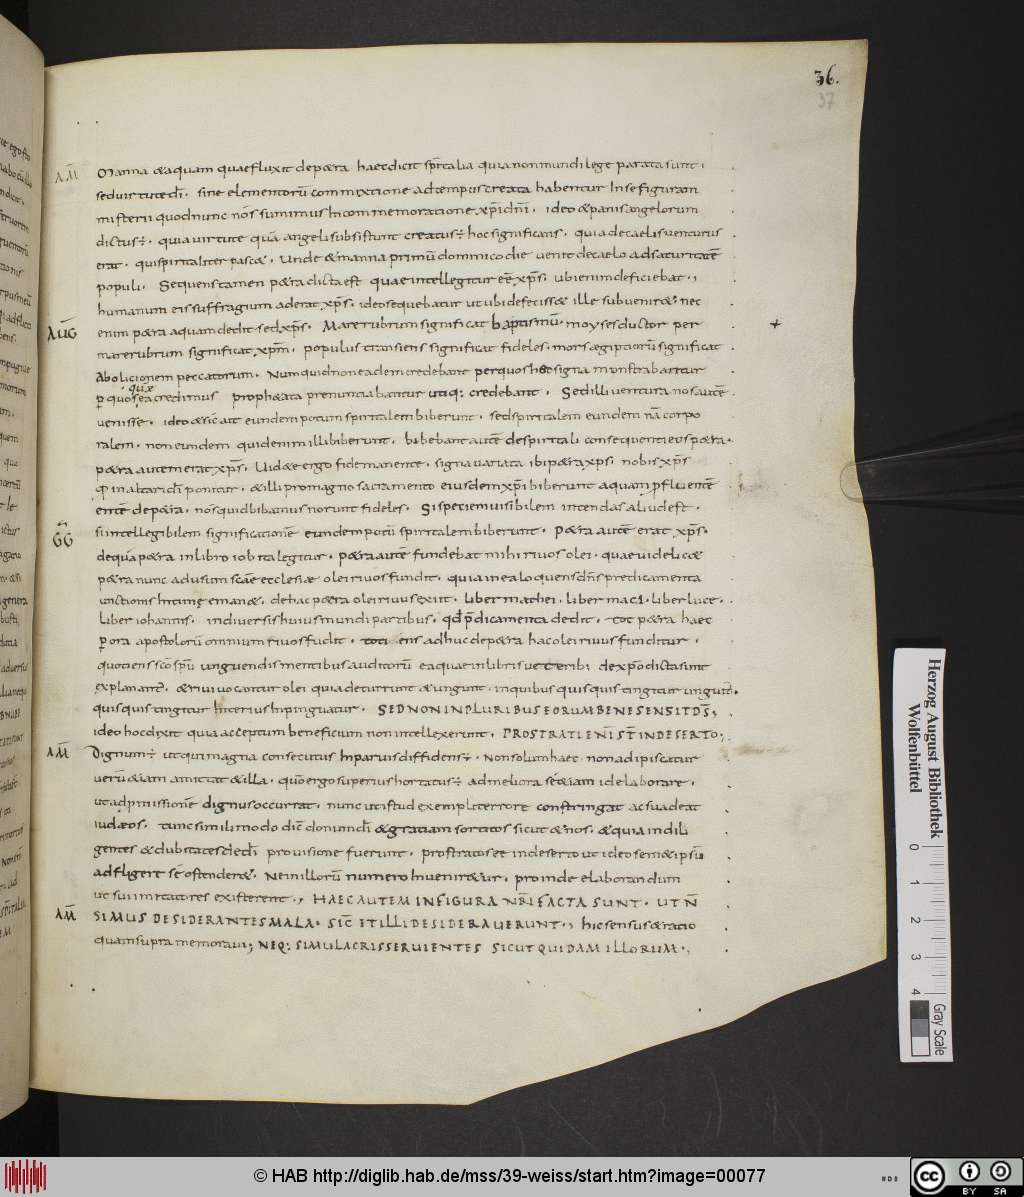 36.
37
AM̄ Manna & aquam quae fluxit de p&ra haec dicit sp̄italia quia non mundi lege parata sunt ;
sed uirtute dī . sine elementorū commixtione ad tempus creata habentur In se figuram
misterii quod nunc nos sumimus In commemoratione xp̄i dn̄i . ideo & panis angelorum
dictus ÷ . quia uirtute qua angeli subsistunt creatus ÷ hoc significans . quia de caelis uenturus
erat . qui spiritaliter pasc& . Unde & manna primū dominico die uenit de caelo ad saturitatē
populi . Sequens tamen p&ra dicta est quae intellegitur eē xp̄s . ubi enim deficiebat ;
humanum eis suffragium aderat xp̄s . ideo sequebatur ut ubi defeciss& ille subuenir& nec
AUG enim p&ra aquam dedit sed xp̄s . Mare rubrum significat baptismū . moyses ductor per
mare rubrum significat xp̄m . populus transiens significat fideles . mors aegiptiorū significat
Abolicionem peccatorum . Numquid non eadem credebant per quos haec signa monstrabantur
quae
p quos ea credimus proph&ata prenunciabantur utiq: credebant . Sed illi uentura nos autē
uenisse . ideo & sic ait eundem potum spiritalem biberunt . sed spiritalem eundem nā corpo
ralem . non eundem quid enim illi biberunt . bibebant autē de spiritali consequenti eos p&ra .
p&ra autem erat xp̄s . Uid&e ergo fide manente . signa uariata ibi p&ra xp̄s . nobis xp̄s
qd in altari dī ponitur . & illi pro magno sacramento eiusdem xp̄i biberunt aquam pfluentē
entē de p&ra . nos quid bibamus norunt fideles . Si speciem uisibilem intendas aliud est .
ĜG si intellegibilem significationē eundem potū spiritalem biberunt . P&ra autē erat xp̄s .
de qua p&ra in libro iob ita legitur . p&ra autē fundebat mihi riuos olei . quae uidelic&
p&ra nunc ad usum scāe ecclesiae olei riuos fundit . quia in ea loquens dn̄s predicamenta
unctionis Intime eman& . de hac p&ra olei riuus exiit . liber mathei . liber marci . liber lucae .
liber iohannis . in diuersis huius mundi partibus . qd p̄dicamenta dedit . tot p&ra haec
p ora apostolorū omnium riuos fudit . toti ens adhuc de p&ra hac olei riuus funditur .
quotiens scō spū unguendis mentibus auditorū ea quae in libris ueteribi de xp̄o dicta sunt
explanantr̄ . & riui uocantur olei quia decurrunt & ungunt . in quibus quisquis tingitur unguit̄ .
quisquis tingitur Interius Inpinguatur . SED NON IN PLURIBUS EORUM BENE SENSIT DS̄ ;
ideo hoc dixit quia acceptum beneficium non intellexerunt . PROSTRATI ENĪ ST̄ IN DESERTO ;
AM̄ Dignum ÷ ut qui magna consecutus In paruis diffidens ÷ . Non solum haec . non adipiscatur
uerū &iam amittat & illa . quō ergo superius hortatus ÷ ad meliora se &iam id elaborare .
ut ad p̄missionē dignus occurrat . nunc ut istud exempli terrore constringat ac suadeat
iud&os . tunc simili modo dic̄ donum dī & gratiam sortitos sicut & nos . & quia indili
gentes & dubitates de dī prouisione fuerunt . prostratos eē in deserto ut ideo sem&ipsū
adfligere se ostender& . Ne in illorū numero Inuenir&ur . proinde elaborandum
ut sui imitatores existerent . HAEC AUTEM IN FIGURA NR̄I FACTA SUNT . UT N̄
AM̄ SIMUS DESIDERANTES MALA . SIC̄ ET ILLI DESIDERAUERUNT . ; hic sensus & ratio
quam supra memoraui ; NEQ: SIMULACRIS SERUIENTES SICUT QUIDAM ILLORUM . ;
Herzog August Bibliothek
Wolfenbüttel
0 1 2 3 4
Gray Scale
© HAB http://diglib.hab.de/mss/39-weiss/start.htm?image=00077
cc BY SA